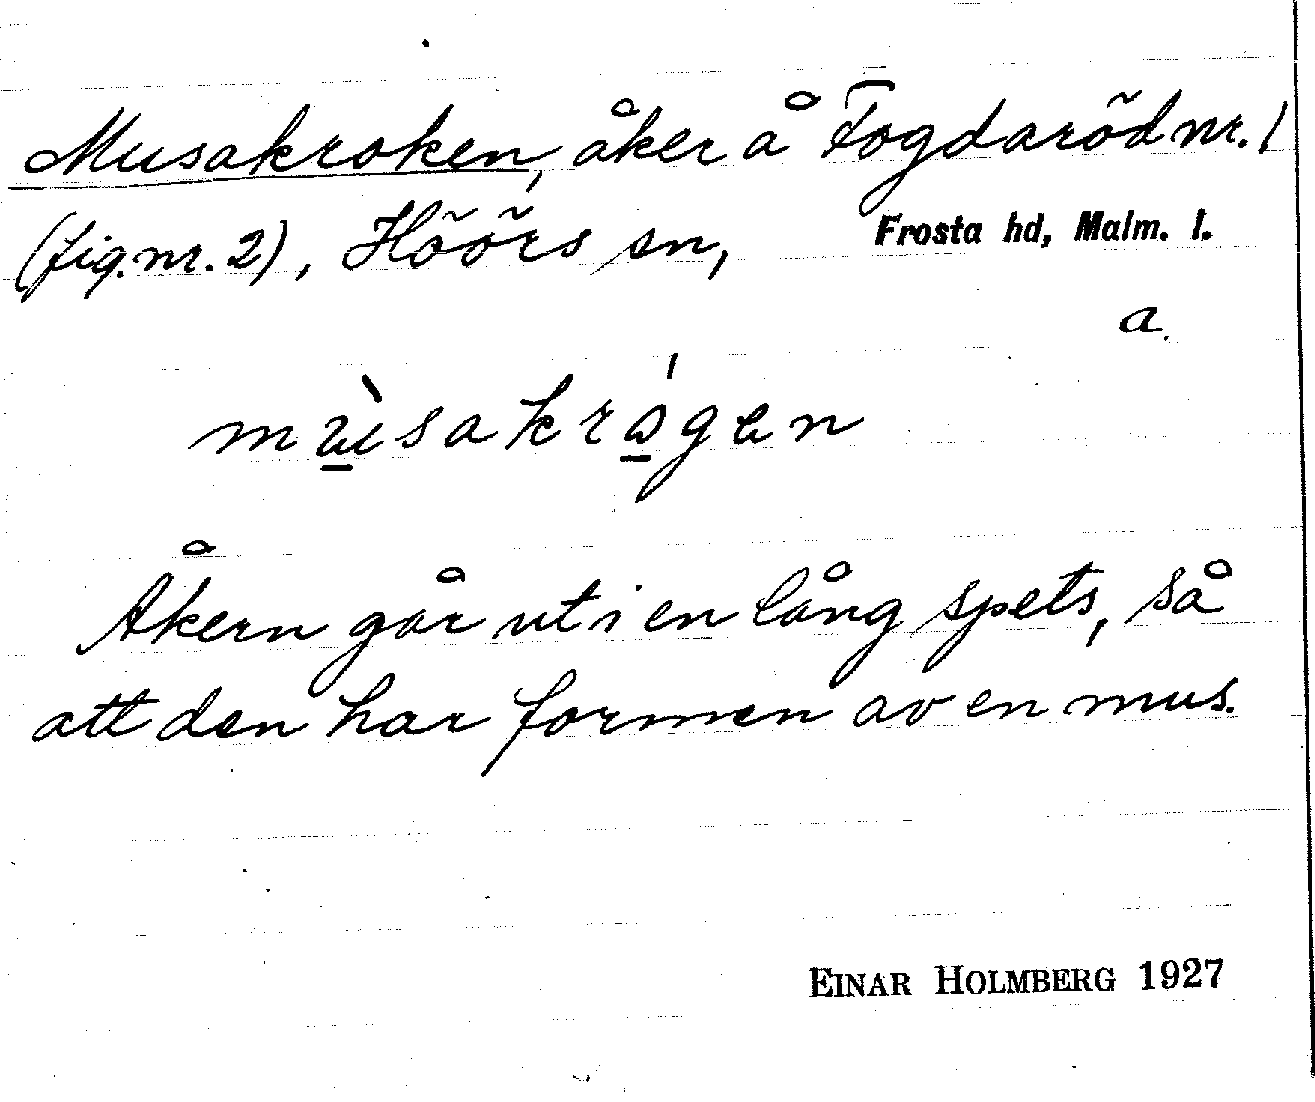 Musakroken, åker å Fogdaröd nr. 1
(fig. nr. 2), Höörs sn, Frosta hd, Malm. l.
a.
Åkern går ut i en lång spets, så
att den har formen av en mus.
EINAR HOLMBERG 1927